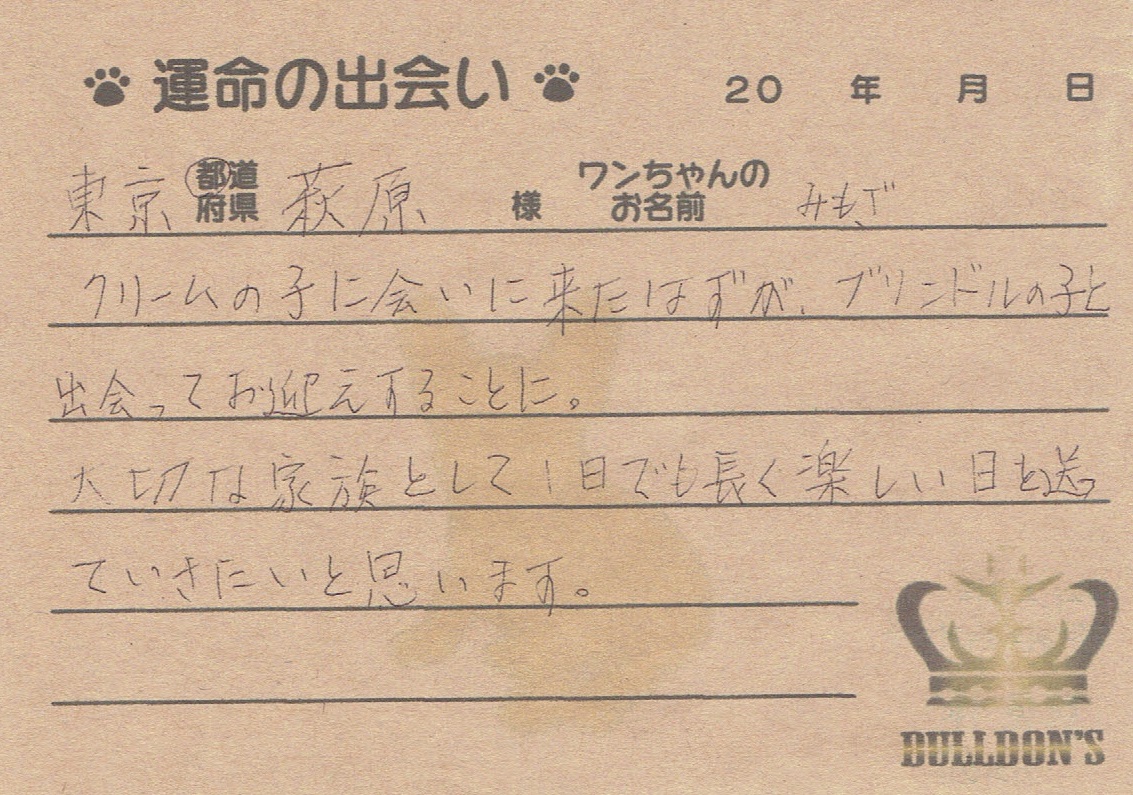 運命の出会い 20 年 月 日
東京 都道府県 萩原 様 ワンちゃんのお名前 みもざ
クリームの子に会いに来たはずが、ブリンドルの子と
出会ってお迎えすることに。
大切な家族として1日でも長く楽しい日を送っ
ていきたいと思います。
BULLDON'S